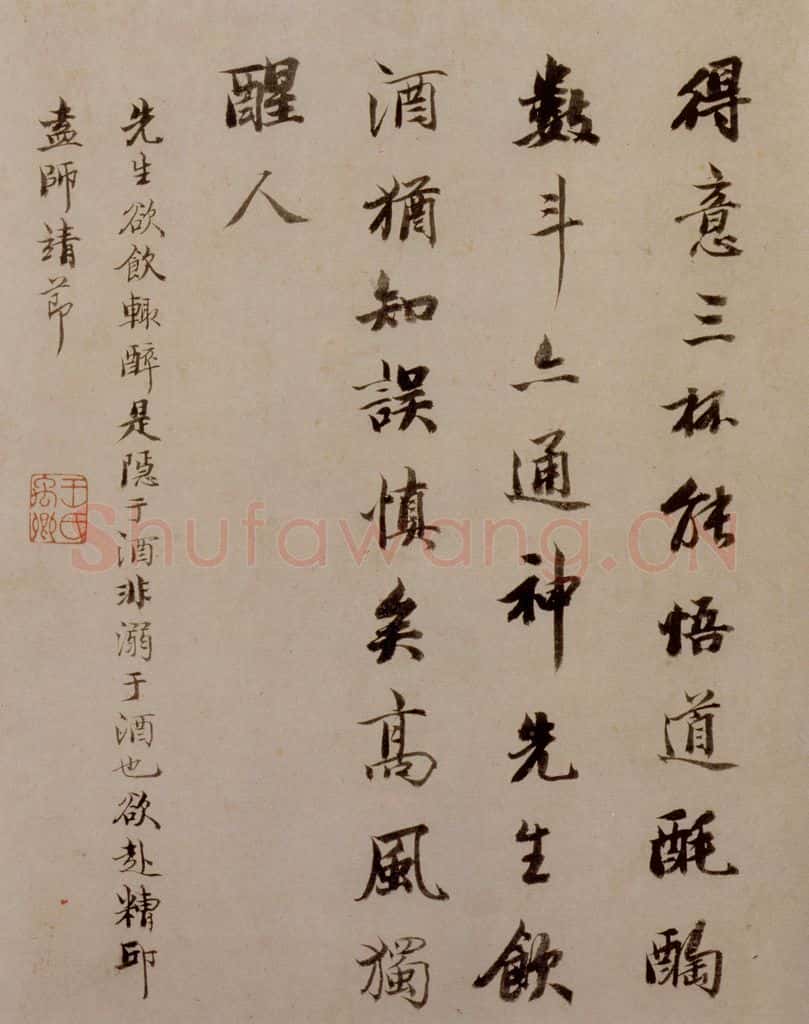 得意三杯能悟道酕醄
數斗亦通神先生飲
酒猶知誤慎矣髙風獨
醒人
先生欲飲輒醉是隱于酒非溺于酒也欲赴糟邱
盍師靖節
王氏禹卿
Shufawang.CN